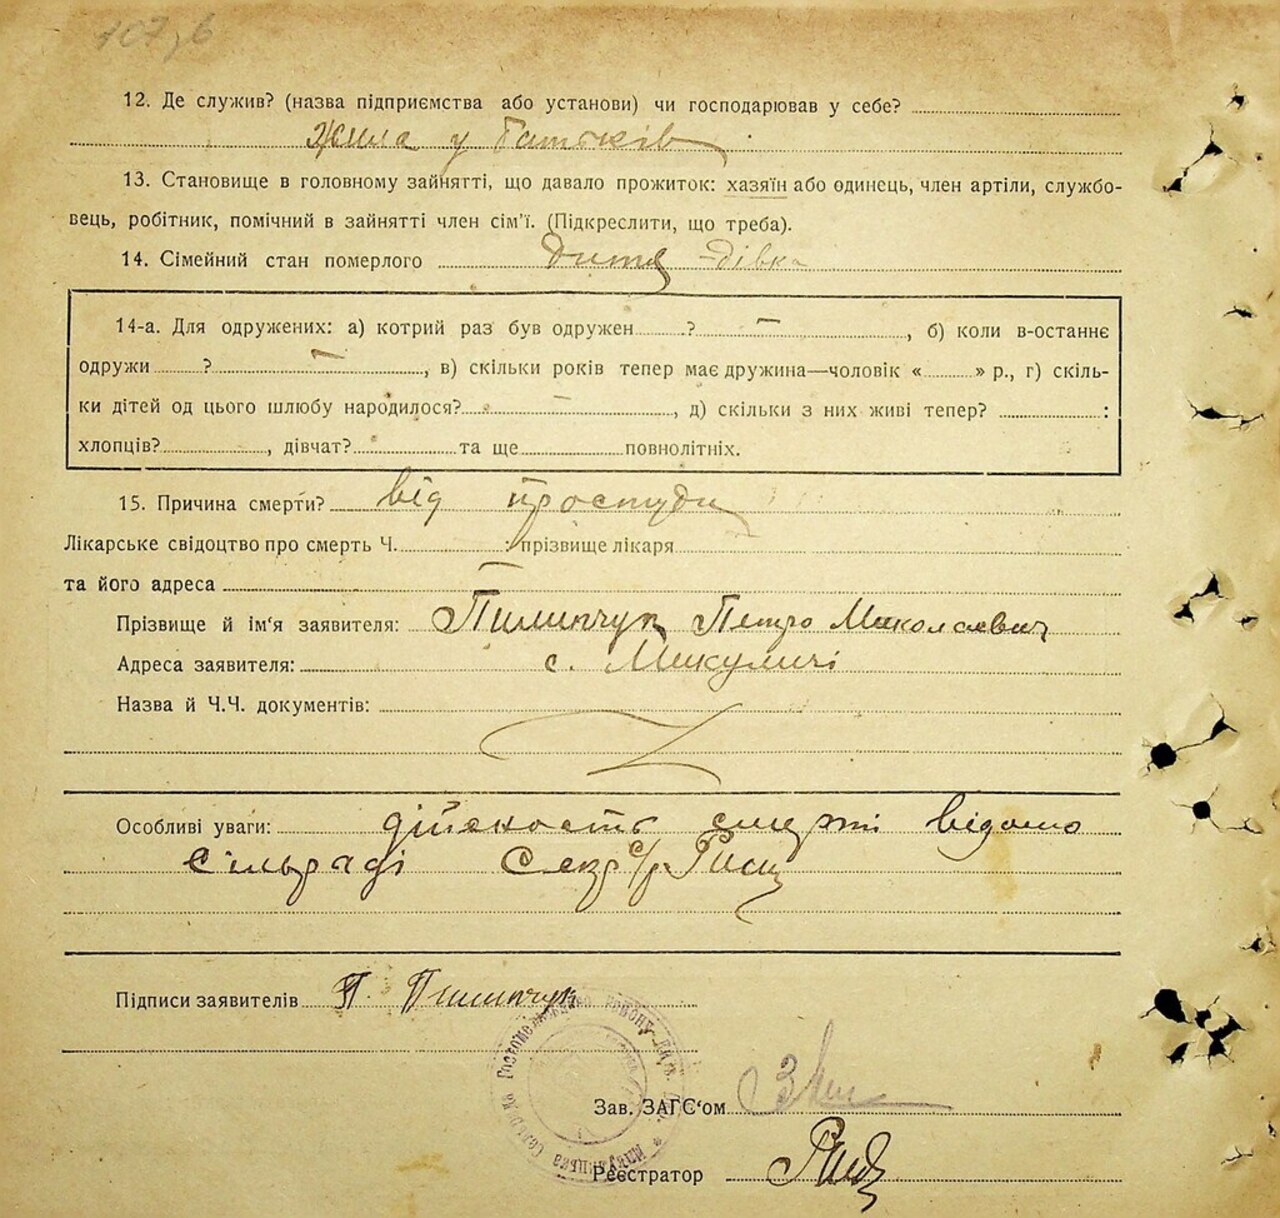 107зв
12. Де служив? (назва підприємства або установи) чи господарював у себе?
Жила у батьків
13. Становище в головному зайнятті, що давало прожиток: хазяїн або одинець, член артіли, службо-
вець, робітник, помічний в зайнятті член сім'ї. (Підкреслити, що треба).
14. Сімейний стан померлого Дитя - дівка
14-а. Для одружених: а) котрий раз був одружен ? —, б) коли в-останнє
одружи ? —, в) скільки років тепер має дружина—чоловік « » р., г) скіль-
ки дітей од цього шлюбу народилося? —, д) скільки з них живі тепер? :
хлопців? , дівчат? та ще повнолітніх.
15. Причина смерти? від простуди
Лікарське свідоцтво про смерть Ч. : прізвище лікаря
та його адреса —
Прізвище й ім'я заявителя: Пилипчук Петро Миколаевич
Адреса заявителя: с. Микуличі
Назва й Ч.Ч. документів:
Особливі уваги: дійсность смерті відомо
сільраді Секр с/р
Підписи заявителів П. Пилипчук
Зав. ЗАГС'ом
Реєстратор